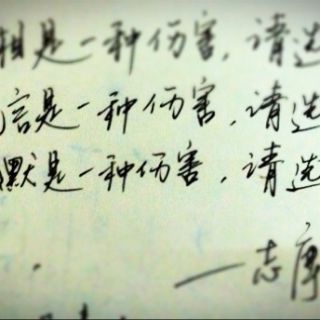 相是一种伤害，请选
言是一种伤害，请选
默是一种伤害，请选
——志